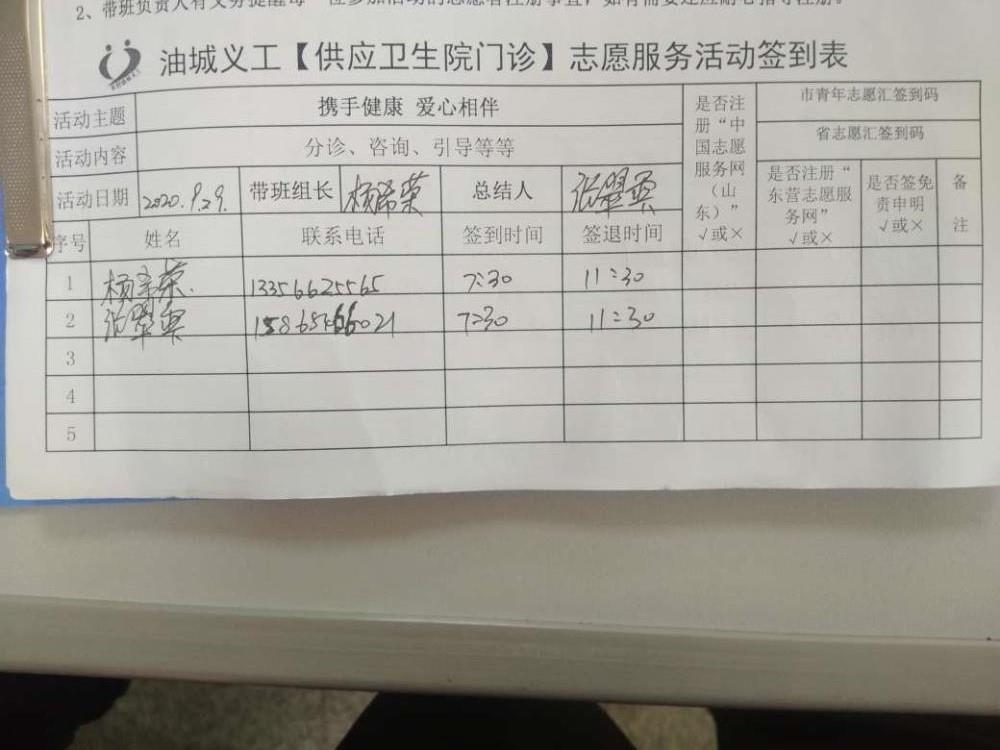 2、带班负责人有义务提醒每一位参加活动的志愿者注册事宜，如有需要还应耐心指导注册。
油城义工【供应卫生院门诊】志愿服务活动签到表
活动主题 携手健康 爱心相伴 是否注册“中国志愿服务网（山东）” √或× 市青年志愿汇签到码
活动内容 分诊、咨询、引导等等 省志愿汇签到码
活动日期 2020.9.29. 带班组长 总结人 张翠 是否注册“东营志愿服务网” √或× 是否签免责申明 √或× 备注
序号 姓名 联系电话 签到时间 签退时间
1 13356625565 7:30 11:30
2 张翠 7:30 11:30
3
4
5